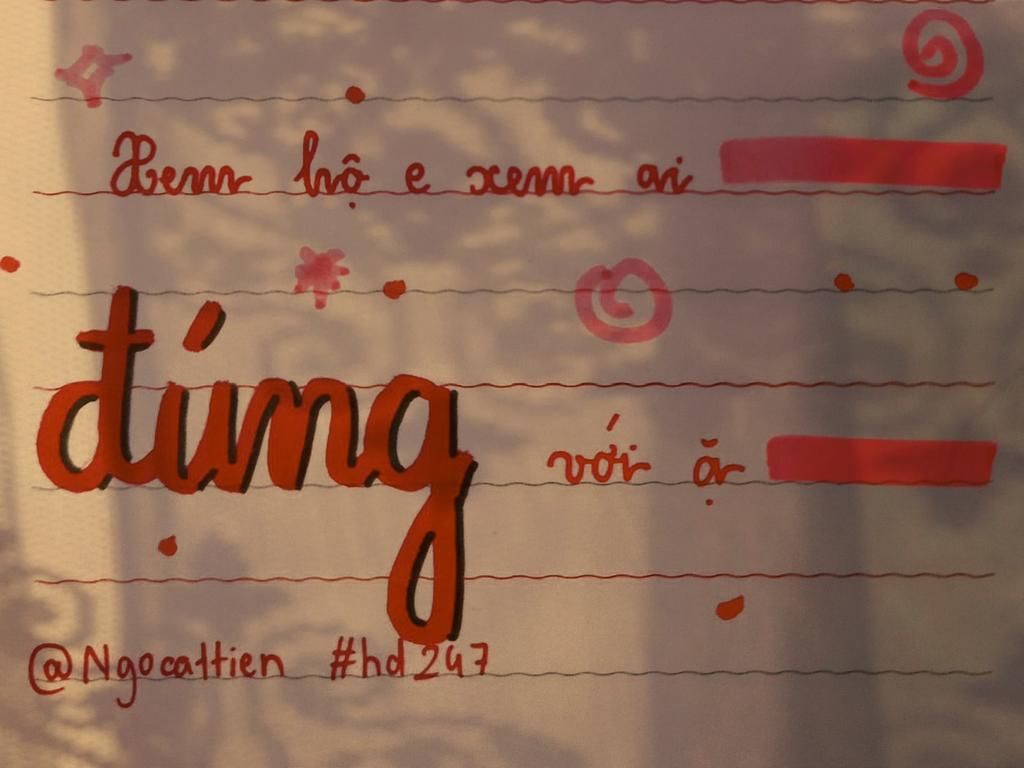 Xem hộ e xem ai
đúng với ặ
@Ngocattien #hd247